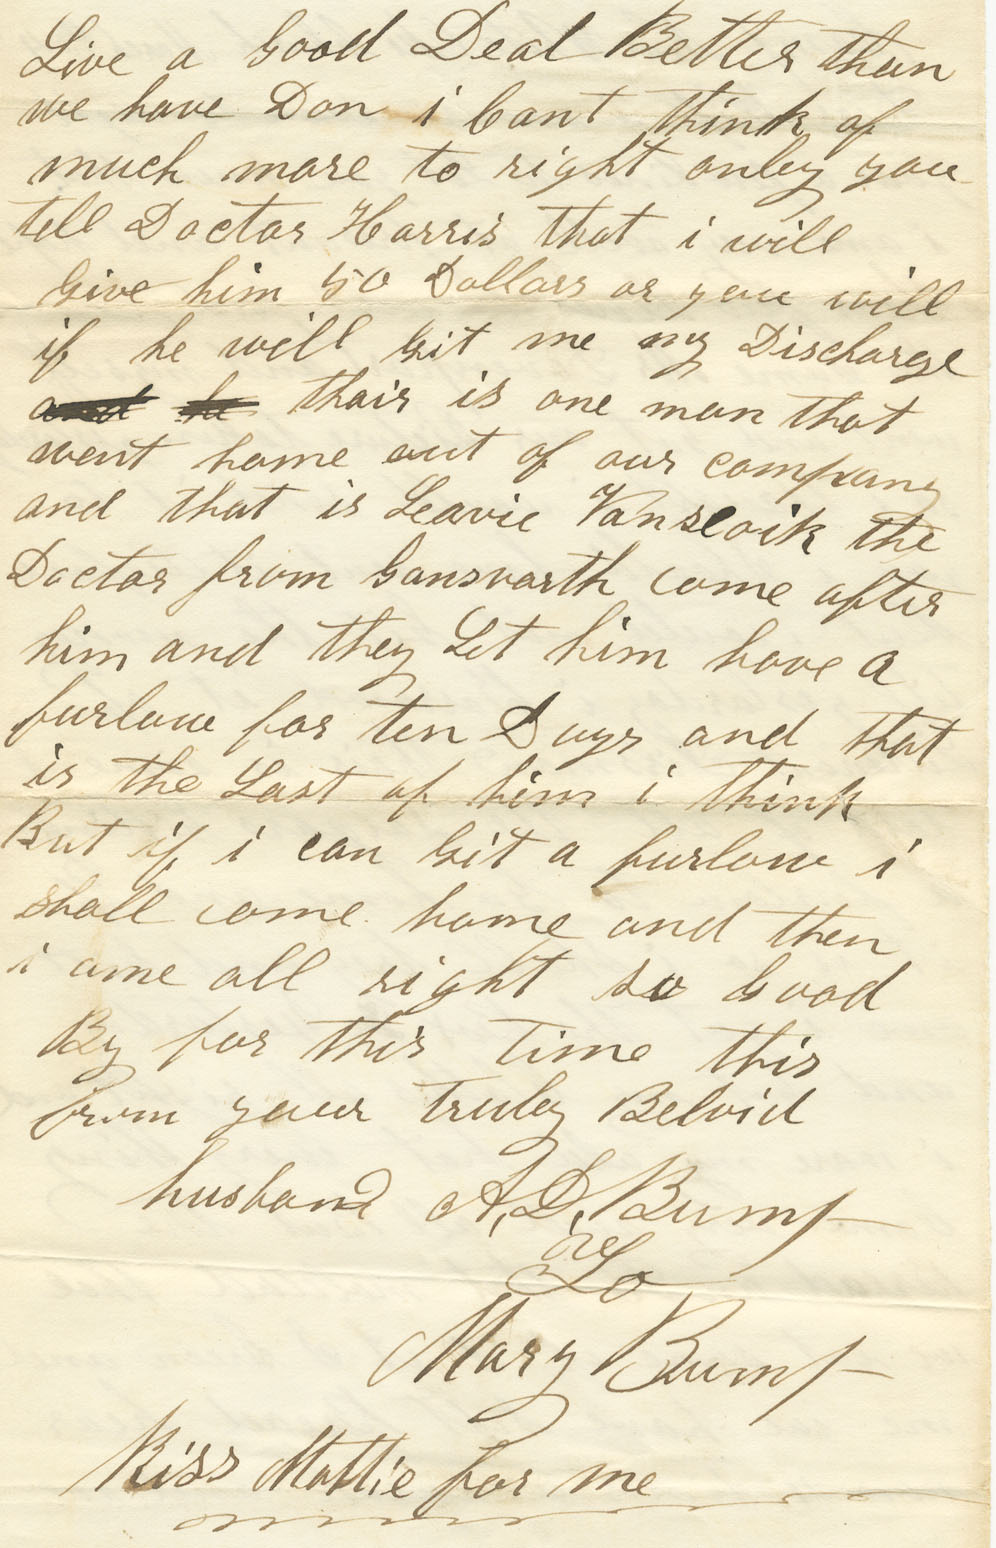 Live a Good Deal Better than
we have Don i Cant think of
much more to right onley you
tell Doctor Harris that i will
Give him 50 Dollars or you will
if he will Git me my Discharge
and he thair is one man that
went home out of our company
and that is Leavie Vansloik the
Doctor from Gansvorth come after
him and they Let him have a
furlow for ten Days and that
is the Last of him i think
But if i can Git a furlow i
shall come home and then
i ame all right so Good
By for this time this
from your truley Belvid
husband A, D, Bump
To
Mary Bump
Kiss Mattie for me